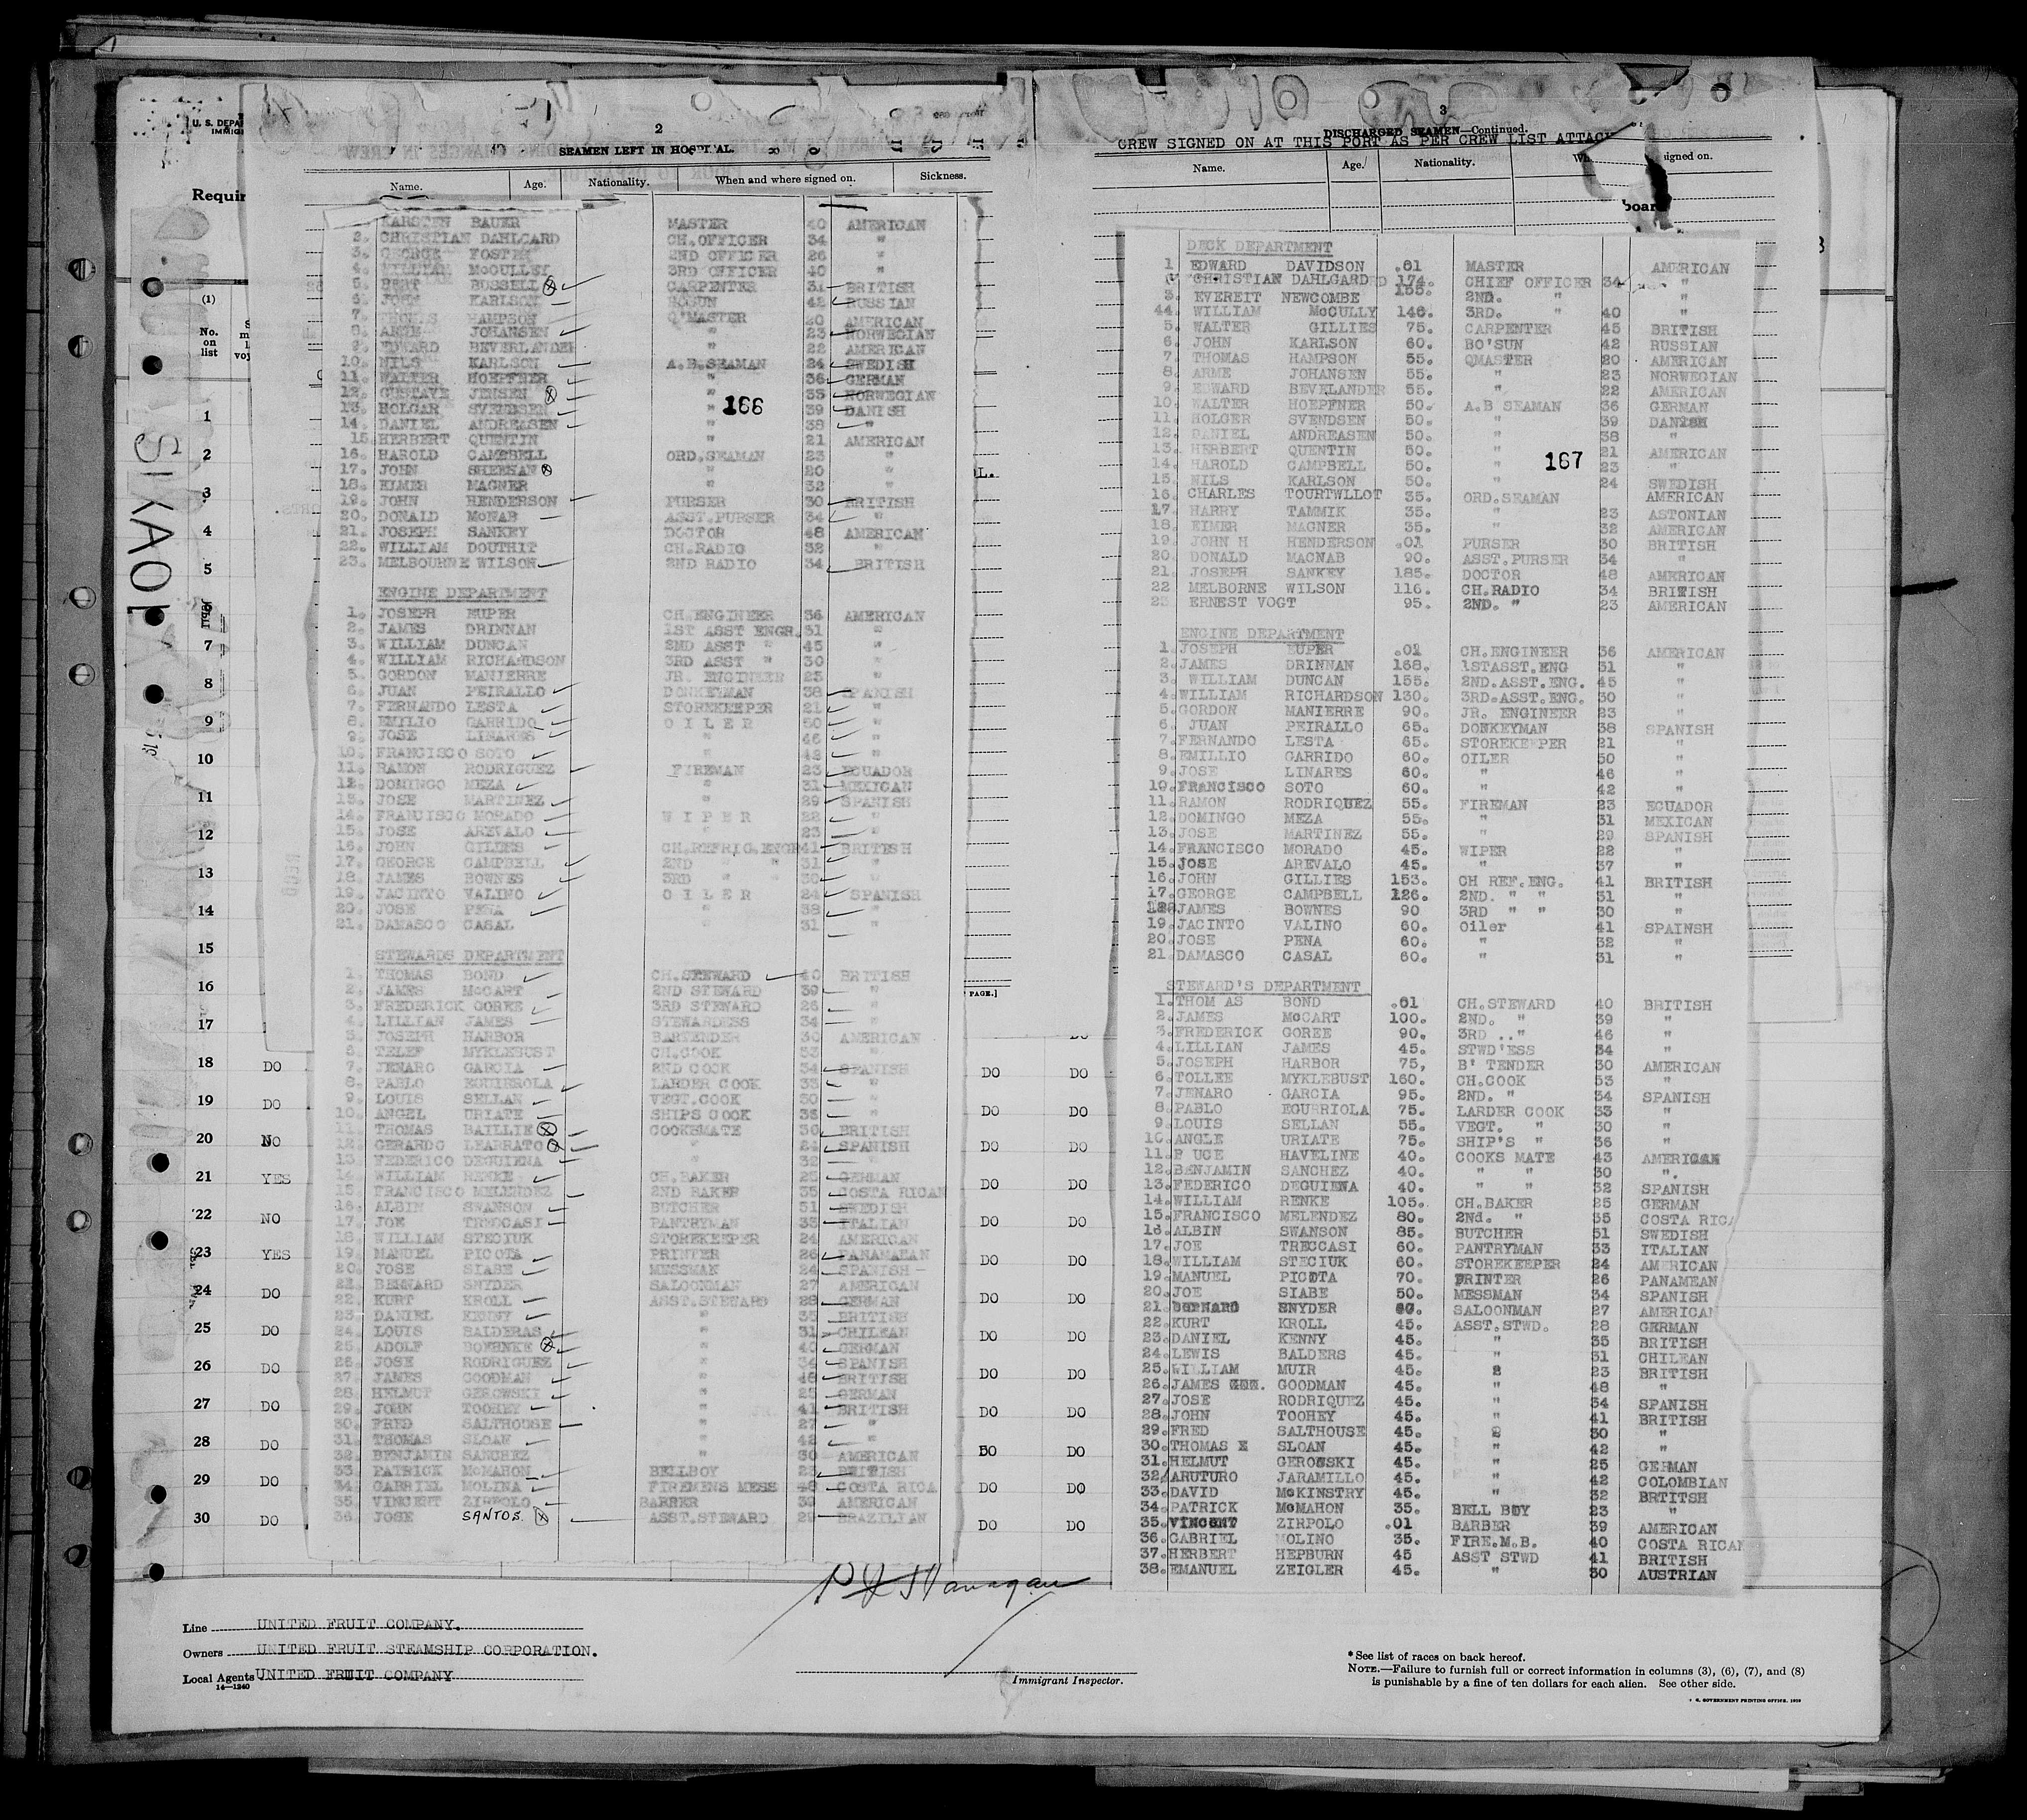 U. S. DEPA
IMMIG
Requir
(1)
No.
on
list
1
2
3
4
5
7
8
9
10
11
12
13
14
15
16
17
18 DO
19 DO
20 NO
21 YES
22 NO
23 YES
24 DO
25 DO
26 DO
27 DO
28 DO
29 DO
30 DO
2
SEAMEN LEFT IN HOSPITAL.
Name. Age. Nationality. When and where signed on. Sickness.
KARSTEN BAUER MASTER 40 AMERICAN
2. CHRISTIAN DAHLGARD CH.OFFICER 34 "
3. GEORGE FOSTER 2ND OFFICER 26 "
4. WILLIAM McCULLEY 3RD OFFICER 40 "
5. BERT BUSSELL CARPENTER 31 BRITISH
6. JOHN KARLSON BOSUN 42 RUSSIAN
7. THOMAS HAMPSON Q'MASTER 20 AMERICAN
8. ARNE JOHANSEN " 23 NORWEGIAN
9. EDWARD BEVERLANDER " 22 AMERICAN
10. NILS KARLSON A.B.SEAMAN 24 SWEDISH
11. WALTER HOEPFNER " 36 GERMAN
12. GUSTAVE JENSEN " 35 NORWEGIAN
13. HOLGAR SVENDSEN " 39 DANISH
14. DANIEL ANDREASEN " 38 "
166
15. HERBERT QUENTIN " 21 AMERICAN
16. HAROLD CAMPBELL ORD.SEAMAN 23 "
17. JOHN SHEEHAN " 20 "
18. ELMER MAGNER " 32 "
19. JOHN HENDERSON PURSER 30 BRITISH
20. DONALD McNAB ASST.PURSER 34 "
21. JOSEPH SANKEY DOCTOR 48 AMERICAN
22. WILLIAM DOUTHIT CH.RADIO 32 "
23. MELBOURNE WILSON 2ND RADIO 34 BRITISH
ENGINE DEPARTMENT
1. JOSEPH EUPER CH.ENGINEER 36 AMERICAN
2. JAMES DRINNAN 1ST ASST ENGR. 31 "
3. WILLIAM DUNCAN 2ND ASST " 45 "
4. WILLIAM RICHARDSON 3RD ASST " 30 "
5. GORDON MANIERRE JR. ENGINEER 23 "
6. JUAN PEIRALLO DONKEYMAN 38 SPANISH
7. FERNANDO LESTA STOREKEEPER 21 "
8. EMILIO GARRIDO O I L E R 50 "
9. JOSE LINARES " 46 "
10. FRANCISCO SOTO " 42 "
11. RAMON RODRIGUEZ FIREMAN 23 ECUADOR
12. DOMINGO MEZA " 31 MEXICAN
13. JOSE MARTINEZ " 29 SPANISH
14. FRANCISCO MORADO W I P E R 22 "
15. JOSE AREVALO " 23 "
16. JOHN GILLES CH.REFRIG.ENGR 41 BRITISH
17. GEORGE CAMPBELL 2ND " " 31 "
18. JAMES BOWNES 3RD " " 30 "
19. JACINTO VALINO O I L E R 24 SPANISH
20. JOSE PENA " 38 "
21. DAMASCO CASAL " 31 "
STEWARDS DEPARTMENT
1. THOMAS BOND CH.STEWARD 40 BRITISH
2. JAMES McCART 2ND STEWARD 39 "
3. FREDERICK GOREE 3RD STEWARD 26 "
4. LILLIAN JAMES STEWARDESS 34 "
5. JOSEPH HARBOR BARTENDER 30 AMERICAN
6. TELEF MYKLEBUST CH.COOK 53 "
7. JENARO GARCIA 2ND COOK 34 SPANISH
8. PABLO EGUIRROLA LARDER COOK 33 "
9. LOUIS SELLAN VEGT.COOK 30 "
10. ANGEL URIATE SHIPS COOK 36 "
11. THOMAS BAILLIE COOKSMATE 30 BRITISH
12. GERARDO LEARRATO " 24 SPANISH
13. FEDERICO DEGUIENA " 32 "
14. WILLIAM RENKE CH.BAKER 25 GERMAN
15. FRANCISCO MELENDEZ 2ND BAKER 35 COSTA RICAN
16. ALBIN SWANSON BUTCHER 51 SWEDISH
17. JOE TRECCASI PANTRYMAN 33 ITALIAN
18. WILLIAM STECIUK STOREKEEPER 24 AMERICAN
19. MANUEL PICOTA PRINTER 26 PANAMAEAN
20. JOSE SIABE MESSMAN 24 SPANISH
21. BERNARD SNYDER SALOONMAN 27 AMERICAN
22. KURT KROLL ASST.STEWARD 28 GERMAN
23. DANIEL KENNY " 35 BRITISH
24. LOUIS BALDERAS " 31 CHILEAN
25. ADOLF BOEHNKE " 40 GERMAN
26. JOSE RODRIGUEZ " 34 SPANISH
27. JAMES GOODMAN " 48 BRITISH
28. HELMUT GEROWSKI " 25 GERMAN
29. JOHN TOOHEY " 41 BRITISH
30. FRED SALTHOUSE " 27 "
31. THOMAS SLOAN " 42 "
32. BENJAMIN SANCHEZ " 30 AMERICAN
33. PATRICK McMAHON BELLBOY 23 BRITISH
34. GABRIEL MOLINA FIREMENS MESS 40 COSTA RICA
35. VINCENT ZIRPOLO BARBER 39 AMERICAN
36. JOSE SANTOS ASST.STEWARD 29 BRAZILIAN
PAGE.]
DO DO
DO DO
DO DO
DO DO
DO DO
DO DO
DO DO
DO DO
DO DO
DO DO
DO DO
DO DO
DO DO
3
DISCHARGED SEAMEN—Continued.
CREW SIGNED ON AT THIS PORT AS PER CREW LIST ATTAC
Name. Age. Nationality. Wh signed on.
board
DECK DEPARTMENT
1 EDWARD DAVIDSON .01 MASTER AMERICAN
CHRISTIAN DAHLGARD 174. CHIEF OFFICER 34 "
3. EVEREIT NEWCOMBE 155. 2ND. " "
44. WILLIAM McCULLY 146. 3RD. " 40 "
5. WALTER GILLIES 75. CARPENTER 45 BRITISH
6. JOHN KARLSON 60. BO'SUN 42 RUSSIAN
7. THOMAS HAMPSON 55. QMASTER 20 AMERICAN
8. ARME JOHANSEN 55. " 23 NORWEGIAN
9. EDWARD BEVELANDER 55. " 22 AMERICAN
10. WALTER HOEPFNER 50. A.B SEAMAN 36 GERMAN
11. HOLGER SVENDSEN 50. " 39 DANISH
12. DANIEL ANDREASEN 50. " 38 "
13. HERBERT QUENTIN 50. " 21 AMERICAN
14. HAROLD CAMPBELL 50. " 23 "
167
15. NILS KARLSON 50. " 24 SWEDISH
16. CHARLES TOURTWLLOT 35. ORD.SEAMAN AMERICAN
17. HARRY TAMMIK 35. " 23 ASTONIAN
18. EIMER MAGNER 35. " 32 AMERICAN
19. JOHN H HENDERSON .01 PURSER 30 BRITISH
20. DONALD MACNAB 90. ASST.PURSER 34 "
21. JOSEPH SANKEY 185. DOCTOR 48 AMERICAN
22 MELBORNE WILSON 116. CH.RADIO 34 BRITISH
23 ERNEST VOGT 95. 2ND. " 23 AMERICAN
ENGINE DEPARTMENT
1. JOSEPH EUPER .01 CH.ENGINEER 36 AMERICAN
2. JAMES DRINNAN 168. 1STASST.ENG 31 "
3. WILLIAM DUNCAN 155. 2ND.ASST.ENG. 45 "
4. WILLIAM RICHARDSON 130. 3RD.ASST.ENG. 30 "
5. GORDON MANIERRE 90. JR. ENGINEER 23 "
6. JUAN PEIRALLO 65. DONKEYMAN 38 SPANISH
7. FERNANDO LESTA 65. STOREKEEPER 21 "
8. EMILLIO GARRIDO 60. OILER 50 "
9. JOSE LINARES 60. " 46 "
10. FRANCISCO SOTO 60. " 42 "
11. RAMON RODRIQUEZ 55. FIREMAN 23 ECUADOR
12. DOMINGO MEZA 55. " 31 MEXICAN
13. JOSE MARTINEZ 55. " 29 SPANISH
14. FRANCISCO MORADO 45. WIPER 22 "
15. JOSE AREVALO 45. " 37 "
16. JOHN GILLIES 153. CH REF.ENG. 41 BRITISH
17. GEORGE CAMPBELL 126. 2ND. " " 31 "
18. JAMES BOWNES 90 3RD " " 30 "
19. JACINTO VALINO 60. Oiler 41 SPAINSH
20. JOSE PENA 60. " 32 "
21. DAMASCO CASAL 60. " 31 "
STEWARD'S DEPARTMENT
1. THOM AS BOND .01 CH.STEWARD 40 BRITISH
2. JAMES McCART 100. 2ND. " 39 "
3. FREDERICK GOREE 90. 3RD .. " 46 "
4. LILLIAN JAMES 45. STWD'ESS 34 "
5. JOSEPH HARBOR 75, B' TENDER 30 AMERICAN
6. TOLLEE MYKLEBUST 160. CH.COOK 53 "
7. JENARO GARCIA 95. 2ND. " 34 SPANISH
8. PABLO EGURRIOLA 75. LARDER COOK 33 "
9. LOUIS SELLAN 55. VEGT. " 30 "
10. ANGLE URIATE 75. SHIP'S " 36 "
11. B UCE HAVELINE 40. COOKS MATE 43 AMERICAN
12. BENJAMIN SANCHEZ 40. " " 30 "
13. FEDERICO DEGUIENA 40. " " 32 SPANISH
14. WILLIAM RENKE 105. CH.BAKER 25 GERMAN
15. FRANCISCO MELENDEZ 80. 2Nd. " 35 COSTA RICA
16. ALBIN SWANSON 85. BUTCHER 51 SWEDISH
17. JOE TRECCASI 60. PANTRYMAN 33 ITALIAN
18. WILLIAM STECIUK 60. STOREKEEPER 24 AMERICAN
19. MANUEL PICOTA 70. PRINTER 26 PANAMEAN
20. JOE SIABE 50. MESSMAN 34 SPANISH
21. BERNARD SNYDER 60. SALOONMAN 27 AMERICAN
22. KURT KROLL 45. ASST.STWD. 28 GERMAN
23. DANIEL KENNY 45. " 35 BRITISH
24. LEWIS BALDERS 45. " 31 CHILEAN
25. WILLIAM MUIR 45. 2 23 BRITISH
26. JAMES GOODMAN 45. " 48 "
27. JOSE RODRIQUEZ 45. " 34 SPANISH
28. JOHN TOOHEY 45. " 41 BRITISH
29. FRED SALTHOUSE 45. 2 30 "
30. THOMAS X SLOAN 45. " 42 "
31. HELMUT GEROWSKI 45. " 25 GERMAN
32. ARUTURO JARAMILLO 45. " 42 COLOMBIAN
33. DAVID McKINSTRY 45. " 32 BRTITSH
34. PATRICK McMAHON 35. BELL BOY 23 "
35. VINCENT ZIRPOLO .01 BARBER 39 AMERICAN
36. GABRIEL MOLINO 35. FIRE.M.B. 40 COSTA RICAN
37. HERBERT HEPBURN 45 ASST STWD 41 BRITISH
38. EMANUEL ZEIGLER 45. " 30 AUSTRIAN
Line UNITED FRUIT COMPANY.
Owners UNITED FRUIT STEAMSHIP CORPORATION.
Local Agents UNITED FRUIT COMPANY
14—1240
Immigrant Inspector.
* See list of races on back hereof.
NOTE.—Failure to furnish full or correct information in columns (3), (6), (7), and (8)
is punishable by a fine of ten dollars for each alien. See other side.